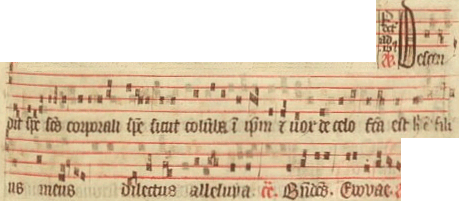 Descen
dit spc scs corporali spe sicut columba i ipm i uox de celo fca est hc e fili
us meus dilectus alleluya cc. Bndcs. Evovae.